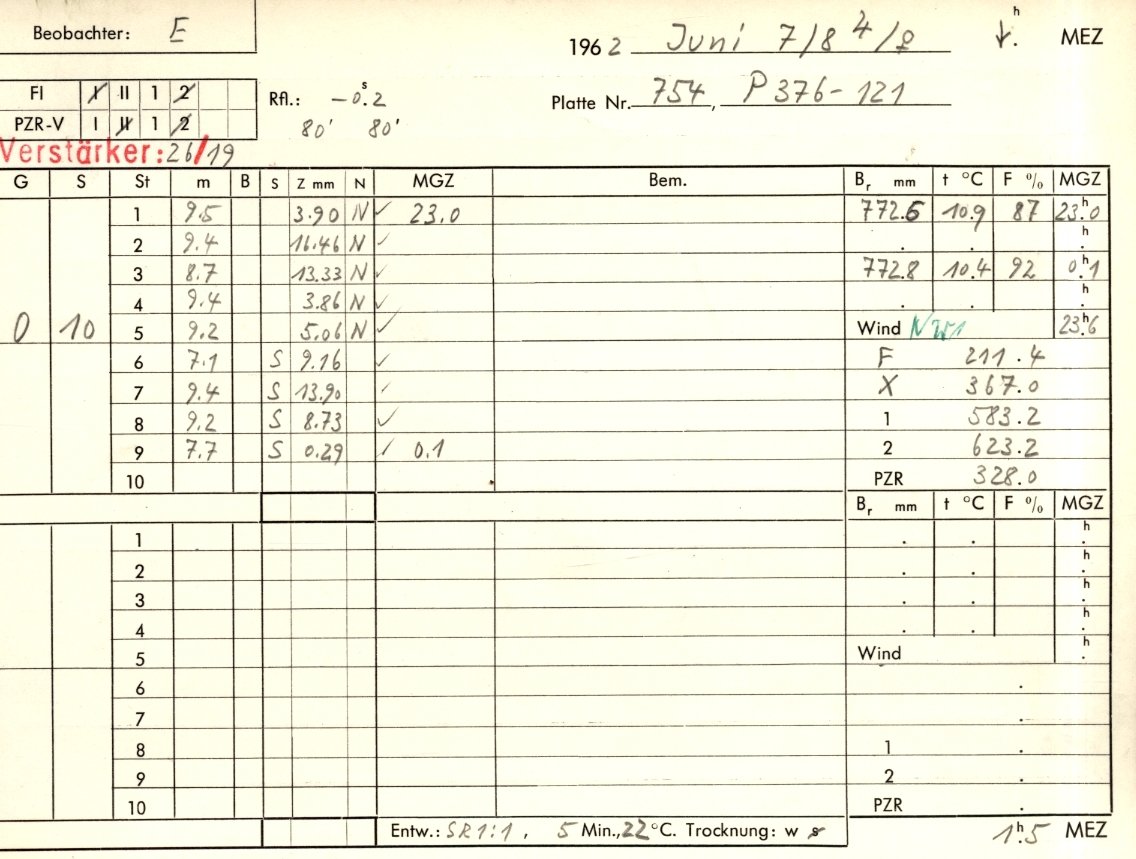 Beobachter: E
1962 Juni 7/8 ♃/♀ h . MEZ
FI I II 1 2
PZR-V I II 1 2
Rfl.: -0ˢ.2
80' 80'
Platte Nr. 754, P 376-121
Verstärker: 26/19
G S St m B S Z mm N MGZ Bem. Br mm t °C F % MGZ
1 9.5 3.90 N ✓ 23.0 772.6 10.9 87 23ʰ.0
2 9.4 16.46 N ✓ . . h .
3 8.7 13.33 N ✓ 772.8 10.4 92 0ʰ.1
4 9.4 3.86 N ✓ . . h .
0 10 5 9.2 5.06 N ✓ Wind NW1 23ʰ.6
6 7.1 S 9.16 ✓ F 211.4
7 9.4 S 13.90 ✓ X 367.0
8 9.2 S 8.73 ✓ 1 583.2
9 7.7 S 0.29 ✓ 0.1 2 623.2
10 PZR 328.0
Br mm t °C F % MGZ
1 . . h .
2 . . h .
3 . . h .
4 . . h .
5 Wind h .
6 .
7 .
8 1 .
9 2 .
10 PZR .
Entw.: SR1:1, 5 Min., 22 °C. Trocknung: w s 1ʰ.5 MEZ